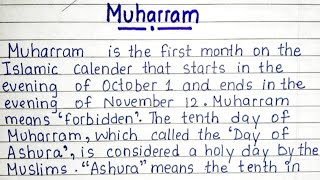 Muharram
Muharram is the first month on the
Islamic calender that starts in the
evening of October 1 and ends in the
evening of November 12. Muharram
means "forbidden". The tenth day of
Muharram, which called the 'Day of
Ashura', is considered a holy day by the
Muslims. "Ashura" means the tenth in